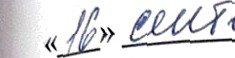 «16» сент.